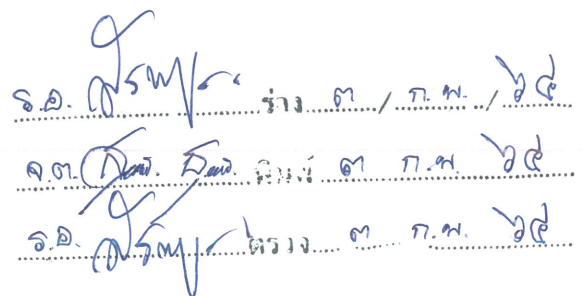 ร.อ. ร่าง ๓ / ก.พ. / ๖๔
จ.ต. พิมพ์ ๓ ก.พ. ๖๔
ร.อ. ตรวจ ๓ ก.พ. ๖๔